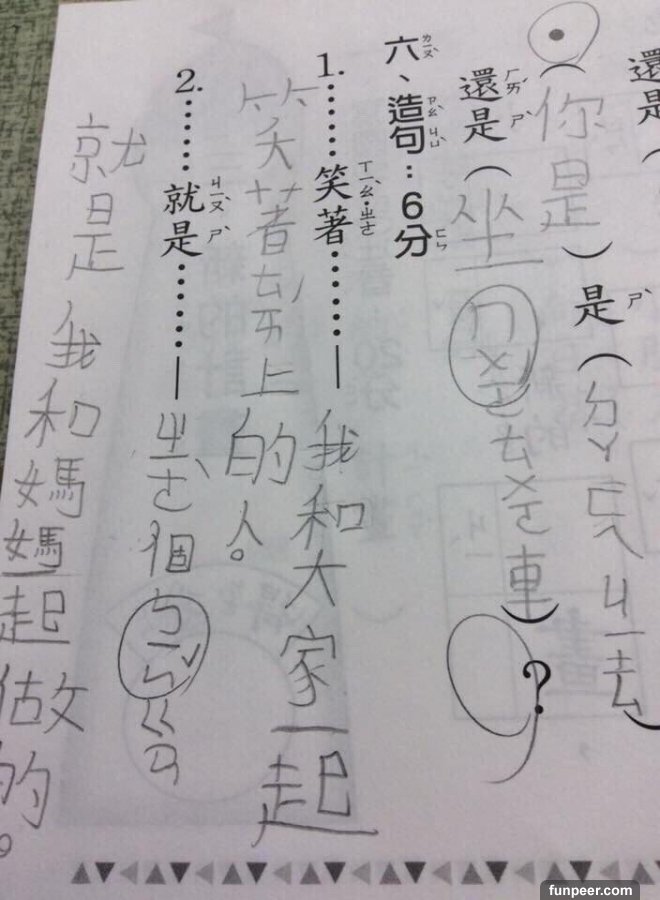 還是（
（你是）是（ㄉㄚㄈㄟㄐㄧ去）
還是（坐ㄇㄨㄛˊㄊㄨㄛ車）？
六、造句：6分
1.……笑著……—我和大家一起
笑著ㄊㄞˊ上的人。
2.……就是……—ㄓㄜˋ個ㄅㄧㄣˇㄍㄢ
就是我和媽媽一起做的。
funpeer.com